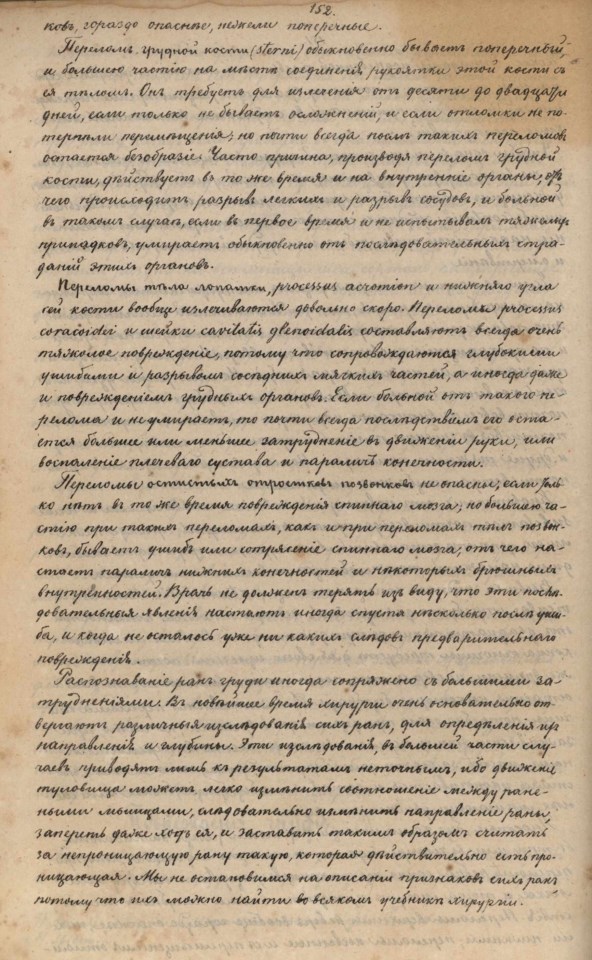 152.
ковъ, гораздо опаснѣе, нежели поперечные.
Переломъ грудной кости (sterni) обыкновенно бываетъ поперечный,
и большею частію на мѣстѣ соединенія рукоятки этой кости съ
ея тѣломъ. Онъ требуетъ для излеченія отъ десяти до двадцати
дней, если только не бываетъ осложненій, и если отломки не по-
терпѣли перемѣщенія; но почти всегда послѣ такихъ переломовъ
остается безобразіе. Часто причина, производя переломъ грудной
кости, дѣйствуетъ въ то же время и на внутренніе органы, отъ
чего происходитъ разрывъ легкихъ и разрывъ сосудовъ, и больной
въ такомъ случаѣ, если въ первое время и не испытывалъ тяжкихъ
припадковъ, умираетъ обыкновенно отъ послѣдовательныхъ стра-
даній этихъ органовъ.
Переломы тѣла лопатки, processus acromion и нижняго угла
сей кости вообще излечиваются довольно скоро. Переломы processus
coracoidei и шейки cavitatis glenoidalis составляютъ всегда очень
тяжолое поврежденіе, потому что сопровождаются глубокими
ушибами и разрывомъ сосѣднихъ мягкихъ частей, а иногда даже
и поврежденіемъ грудныхъ органовъ. Если больной отъ такого пе-
релома и не умираетъ, то почти всегда послѣдствіемъ его оста-
ется большее или меньшее затрудненіе въ движеніи руки, или
воспаленіе плечеваго сустава и параличъ конечности.
Переломы остистыхъ отростковъ позвонковъ не опасны, если толь-
ко нѣтъ въ то же время поврежденія спиннаго мозга; но большею ча-
стію при такихъ переломахъ, какъ и при переломахъ тѣлъ позвон-
ковъ, бываетъ ушибъ или сотрясеніе спиннаго мозга, отъ чего на-
стаетъ параличъ нижнихъ конечностей и нѣкоторыхъ брюшныхъ
внутренностей. Врачъ не долженъ терять изъ виду, что эти послѣ-
довательныя явленія настаютъ иногда спустя нѣсколько послѣ уши-
ба, и когда не осталось уже ни какихъ слѣдовъ предварительнаго
поврежденія.
Распознаваніе ранъ груди иногда сопряжено съ большими за-
трудненіями. Въ новѣйшее время хирурги очень основательно от-
вергаютъ различныя изслѣдованія сихъ ранъ, для опредѣленія ихъ
направленія и глубины. Эти изслѣдованія, въ большей части слу-
чаевъ приводятъ лишь къ результатамъ неточнымъ, ибо движеніе
туловища можетъ легко измѣнить соотношеніе между ране-
ными мышцами, слѣдовательно измѣнить направленіе раны,
запереть даже ходъ ея, и заставить такимъ образомъ считать
за непроницающую рану такую, которая дѣйствительно есть про-
ницающая. Мы не остановимся на описаніи признаковъ сихъ ранъ
потому что ихъ можно найти во всякомъ учебникѣ хирургіи.